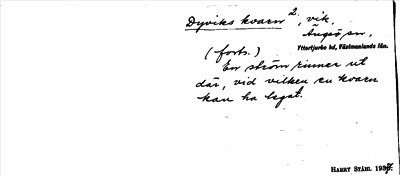 Dyviks kvarn 2, vik.
Ängsö sn,
Yttertjurbo hd, Västmanlands län.
(forts.)
En ström rinner ut
där, vid vilken en kvarn
kan ha legat.
HARRY STÅHL 193